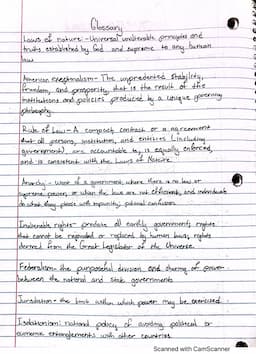 Glossary
Laws of nature - Universal undeniable principles and
truths established by God and supreme to any human
law
American exceptionalism - The unprecedented stability,
freedom, and prosperity that is the result of the
institutions and policies produced by a unique governing
philosophy
Rule of Law - A compact contract or agreement
that all persons, institution, and entities (including
government), are accountable to, is equally enforced,
and is consistent with the Laws of Nature.
Anarchy - of a government, where there is no law or
supreme power, or when the laws are not efficient, and individuals
do what they please with impunity; political confusion
Inalienable rights - predate all earthly government; rights
that cannot be or replaced by human laws, rights
derived from the Great Legislator of the Universe.
Federalism - the purposeful division and sharing of power
between the national and state governments
Jurisdiction - the limit within which power may be exercised.
Isolationism: national policy of avoiding political or
economic entanglements with other countries
Scanned with CamScanner